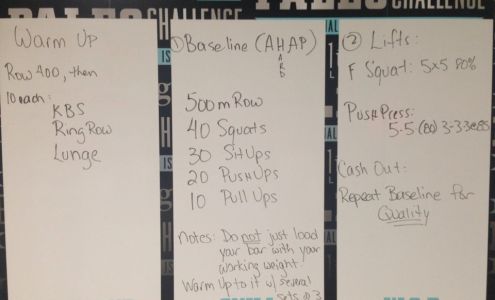 CHALLENGE
CHALLENGE
Warm Up
Row 400, then
10 each:
KBS
Ring Row
Lunge
① Baseline (AHAP)
A
R
D
500m Row
40 Squats
30 Sit Ups
20 Push Ups
10 Pull Ups
Notes: Do not just load
your bar with your
working weight.
Warm Up to it w/ several
Sets @ 3
② Lifts:
F Squat: 5x5 80%
Push Press:
5-5 (80) 3-3-3@85
Cash Out:
Repeat Baseline for
Quality